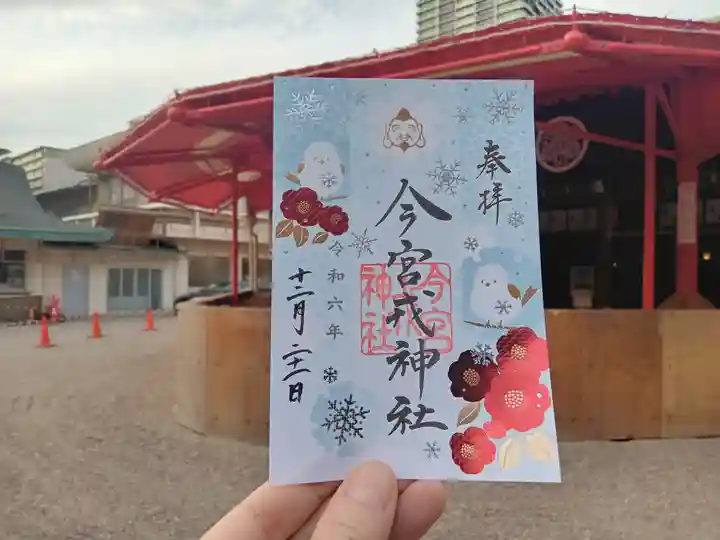 奉拝
今宮戎神社
今宮
神社
令和六年
十二月二十一日